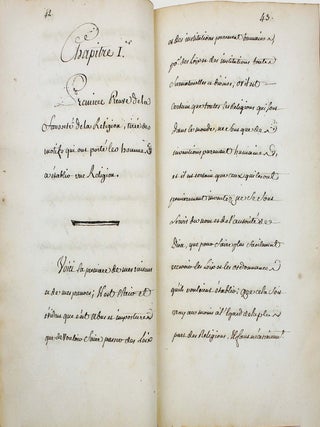 42.
Chapitre I.er
Premiere Preuve de la
fausseté de la Religion, tirée des
motifs qui ont porté les hommes a
établir une Religion.
Voici la premiere de mes raisons
et de mes preuves; il est clair et
évident que c'est abus et imposture
que de vouloir faire passer des Loix
43.
et des institutions purement humaines
pr. des Loix et des institutions toute
surnaturelles et divines, or il est
certain que toutes les Religions qui sont
dans le monde, ne sont que des
inventions purement humaines
et il est certain que ceux qui les ont
premierement inventez ne se sont
servis du nom et de l'autorité de
Dieu, que pour faire plus facilement
recevoir les loix et les ordonnances
qu'ils vouloient établir; que cela soit
vray au moins a l'égard de la plus
part des Religions. il faut